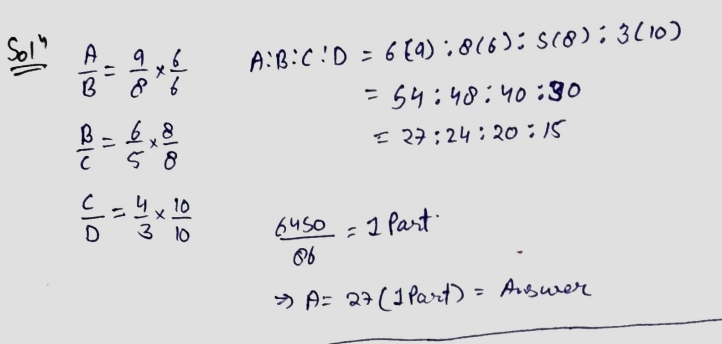 Solⁿ
A/B = 9/8 × 6/6
B/C = 6/5 × 8/8
C/D = 4/3 × 10/10
A:B:C:D = 6(9) : 8(6) : 5(8) : 3(10)
= 54 : 48 : 40 : 30
= 27 : 24 : 20 : 15
6450/86 = 1 Part.
⇒ A = 27 (1 Part) = Answer